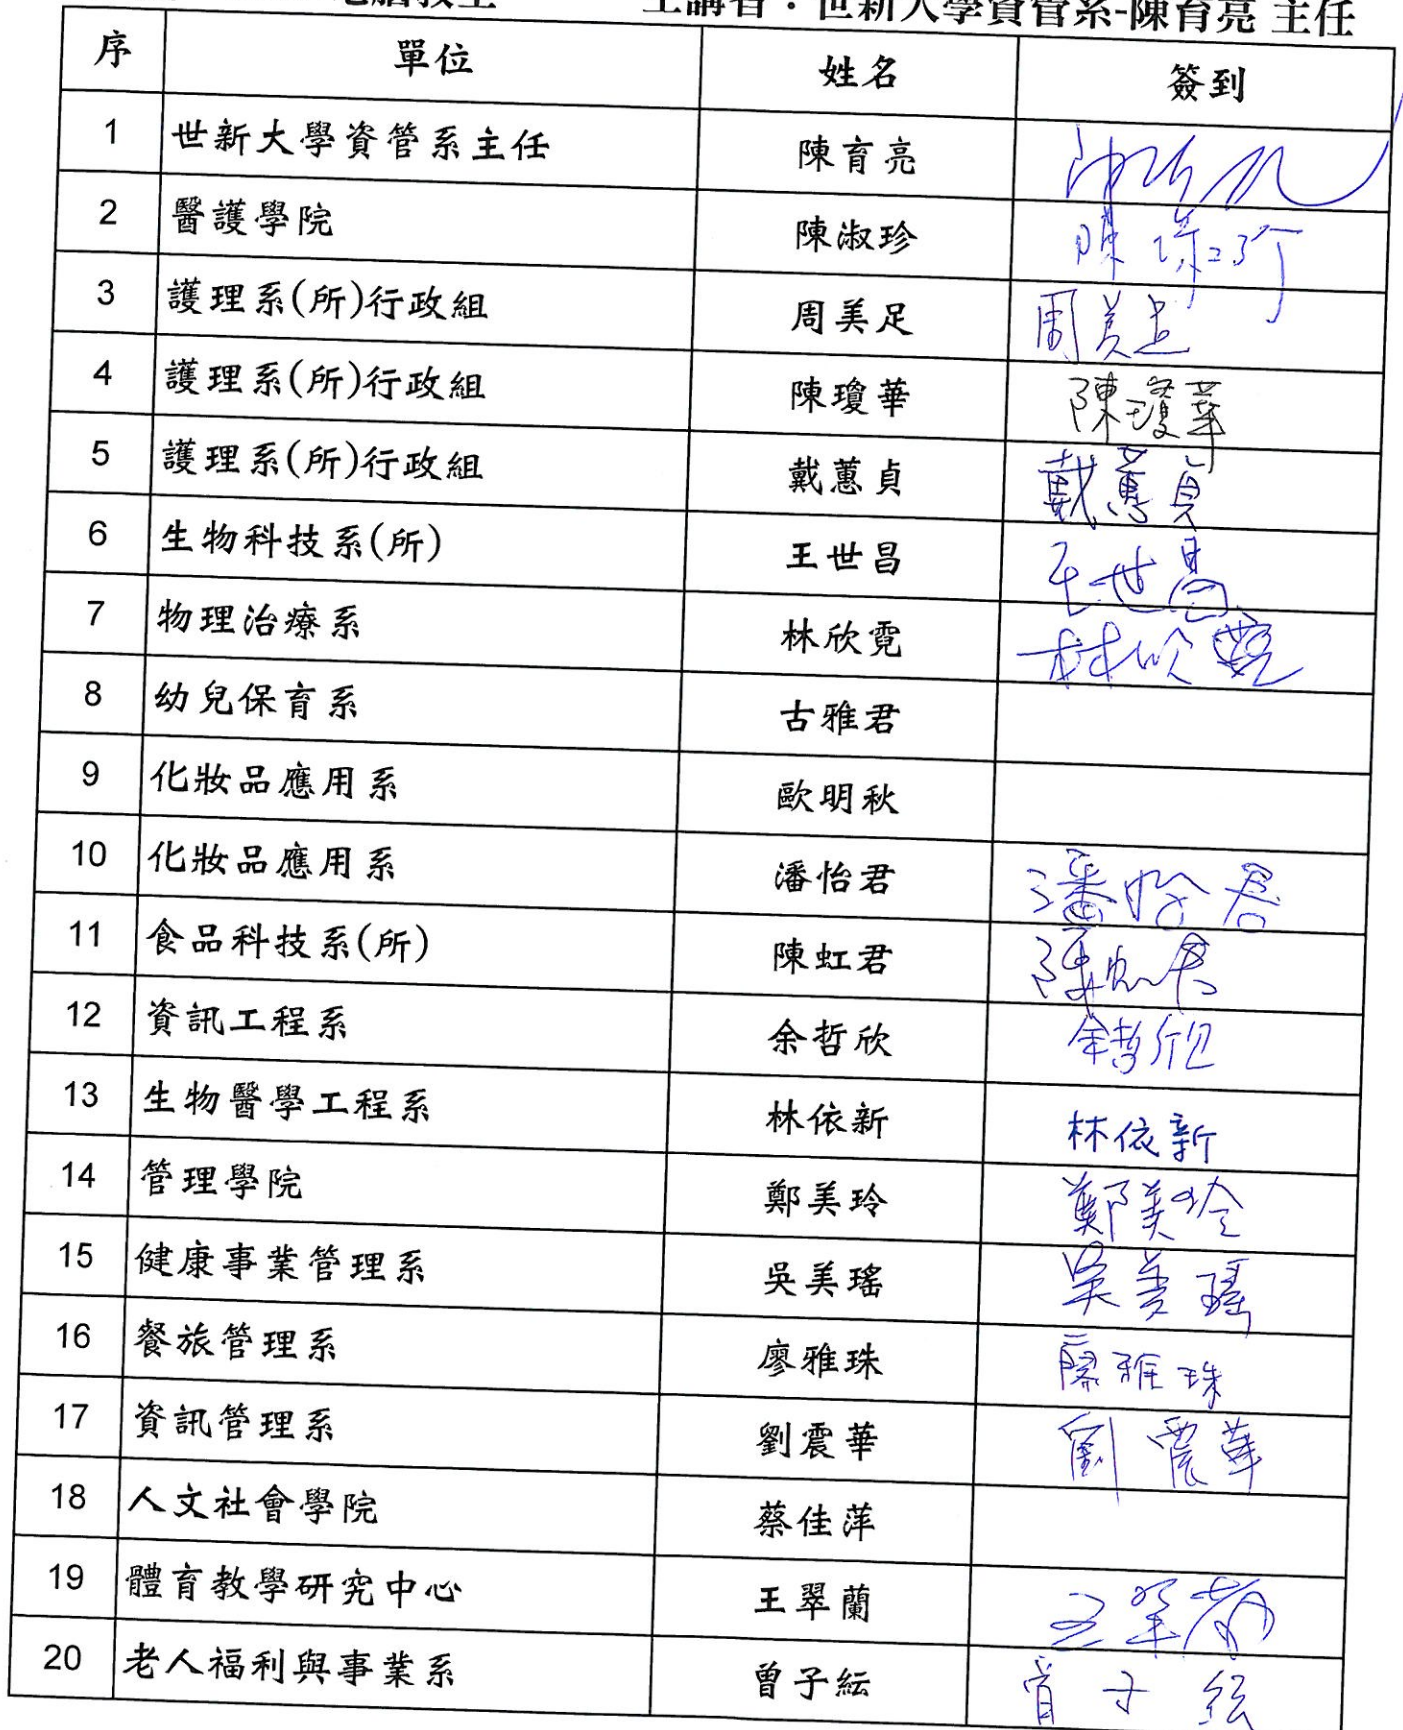 電腦教室 主講者：世新大學資管系-陳育亮 主任
序 單位 姓名 簽到
1 世新大學資管系主任 陳育亮
2 醫護學院 陳淑珍
3 護理系(所)行政組 周美足 周美足
4 護理系(所)行政組 陳瓊華 陳瓊華
5 護理系(所)行政組 戴蕙貞 戴蕙貞
6 生物科技系(所) 王世昌 王世昌
7 物理治療系 林欣霓 林欣霓
8 幼兒保育系 古雅君
9 化妝品應用系 歐明秋
10 化妝品應用系 潘怡君 潘怡君
11 食品科技系(所) 陳虹君 陳虹君
12 資訊工程系 余哲欣 余哲欣
13 生物醫學工程系 林依新 林依新
14 管理學院 鄭美玲 鄭美玲
15 健康事業管理系 吳美瑤 吳美瑤
16 餐旅管理系 廖雅珠 廖雅珠
17 資訊管理系 劉震華 劉震華
18 人文社會學院 蔡佳萍
19 體育教學研究中心 王翠蘭 王翠蘭
20 老人福利與事業系 曾子紜 曾子紜